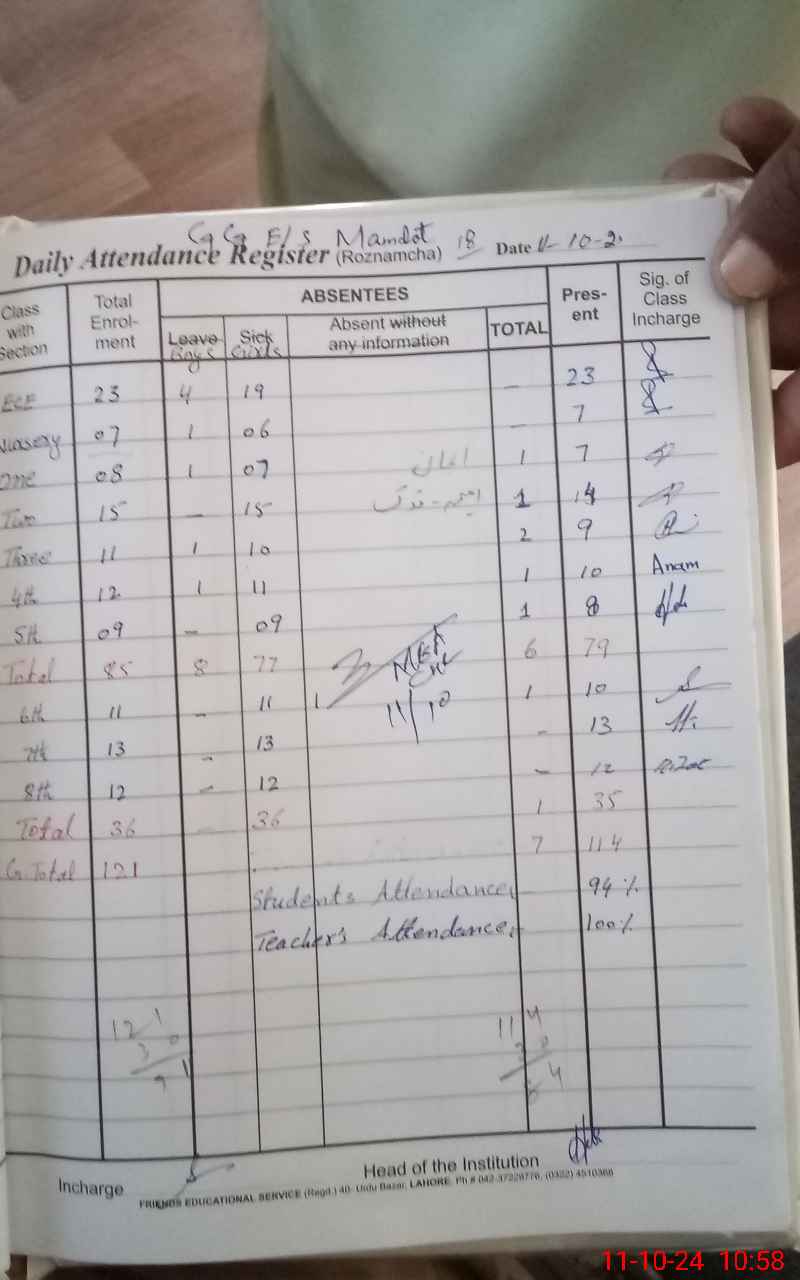 Gg Gg E/S Mamdot 18
Daily Attendance Register (Roznamcha) Date 11-10-2
Class with Section Total Enrol-ment ABSENTEES Pres-ent Sig. of Class Incharge
Leave Sick Absent without any information TOTAL
Boys Girls
ECE 23 4 19 - 23
Nursery 07 1 06 - 7
One 08 1 07 1 7
Two 15 - 15 1 14
Three 11 1 10 2 9
4th 12 1 11 1 10 Anam
5th 09 - 09 1 8
Total 85 8 77 6 79
6th 11 - 11 1 1 10
7th 13 - 13 - 13
8th 12 - 12 - 12
Total 36 - 36 1 35
G Total 121 7 114
11/10
Students Attendance 94%
Teacher's Attendance 100%
121 114
30 30
91 84
Incharge Head of the Institution
FRIENDS EDUCATIONAL SERVICE (Regd.) 40- Urdu Bazar, LAHORE. Ph # 042-37228776, (0322) 4510368
11-10-24 10:58